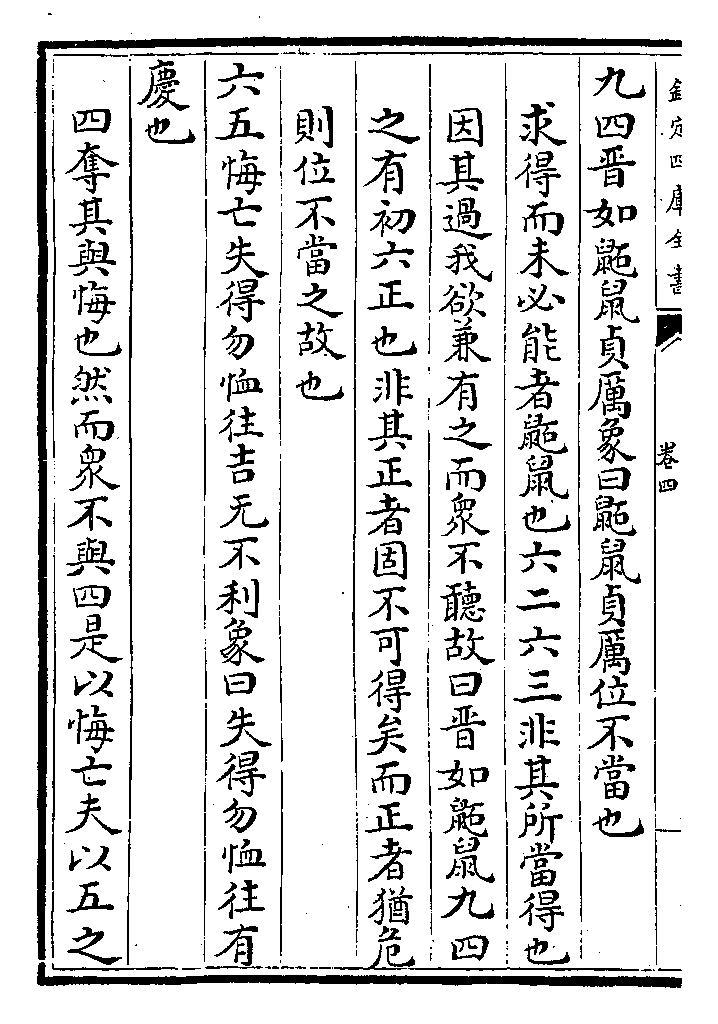 欽定四庫全書
卷四
九四晋如鼫鼠貞厲象曰鼫鼠貞厲位不當也
求得而未必能者鼫鼠也六二六三非其所當得也
因其過我欲兼有之而衆不聽故曰晋如鼫鼠九四
之有初六正也非其正者固不可得矣而正者猶危
則位不當之故也
六五悔亡失得勿恤往吉无不利象曰失得勿恤往有
慶也
四奪其與悔也然而衆不與四是以悔亡夫以五之